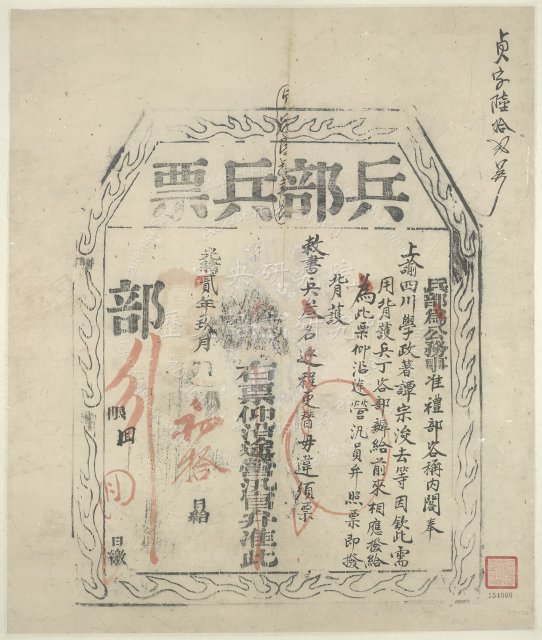 貞字陸拾
兵部兵票
兵部為公務事准禮部咨稱內閣奉
上諭四川學政著譚宗浚去等因欽此需
用背護兵丁咨部辦給前來相應撥給
為此票仰沿途營汛員弁照票即撥
背護
敕書兵叁名逓程更替毋違須票
右票仰沿途營汛官弁准此
光緒貳年玖月
初拾
日給
部
限
日繳
154080